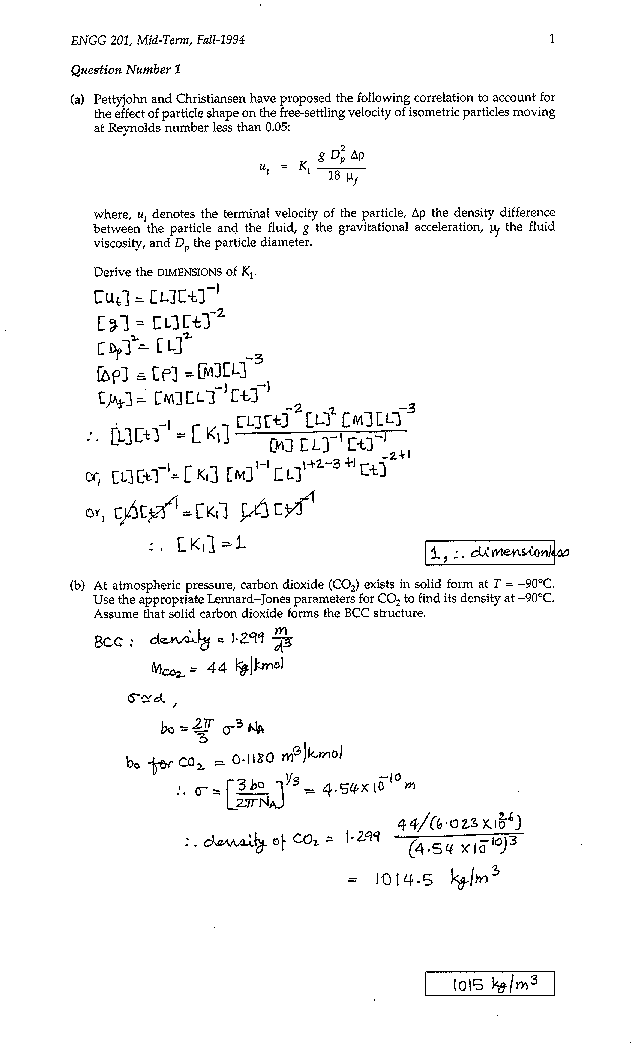 ENGG 201, Mid-Term, Fall-1994 1
Question Number 1
(a) Pettyjohn and Christiansen have proposed the following correlation to account for
the effect of particle shape on the free-settling velocity of isometric particles moving
at Reynolds number less than 0.05:
u_t = K_1 g D_p^2 Δρ / 18 μ_f
where, u_t denotes the terminal velocity of the particle, Δρ the density difference
between the particle and the fluid, g the gravitational acceleration, μ_f the fluid
viscosity, and D_p the particle diameter.
Derive the DIMENSIONS of K_1.
[u_t] = [L][t]^-1
[g] = [L][t]^-2
[D_p]^2 = [L]^2
[Δρ] = [ρ] = [M][L]^-3
[μ_f] = [M][L]^-1[t]^-1
∴ [L][t]^-1 = [K_1] [L][t]^-2 [L]^2 [M][L]^-3 / [M][L]^-1 [t]^-1
or, [L][t]^-1 = [K_1] [M]^1-1 [L]^1+2-3+1 [t]^-2+1
or, [L][t]^-1 = [K_1] [L][t]^-1
∴ [K_1] = 1
1, ∴ dimensionless
(b) At atmospheric pressure, carbon dioxide (CO_2) exists in solid form at T = -90°C.
Use the appropriate Lennard-Jones parameters for CO_2 to find its density at -90°C.
Assume that solid carbon dioxide forms the BCC structure.
BCC : density = 1.299 m/d^3
M_CO2 = 44 kg/kmol
σ≃d,
b_0 = 2π/3 σ^3 N_A
b_0 for CO_2 = 0.1180 m^3/kmol
∴ σ = [3b_0 / 2πN_A]^1/3 = 4.54 x 10^-10 m
∴ density of CO_2 = 1.299 44/(6.023 x 10^26) / (4.54 x 10^-10)^3
= 1014.5 kg/m^3
1015 kg/m^3